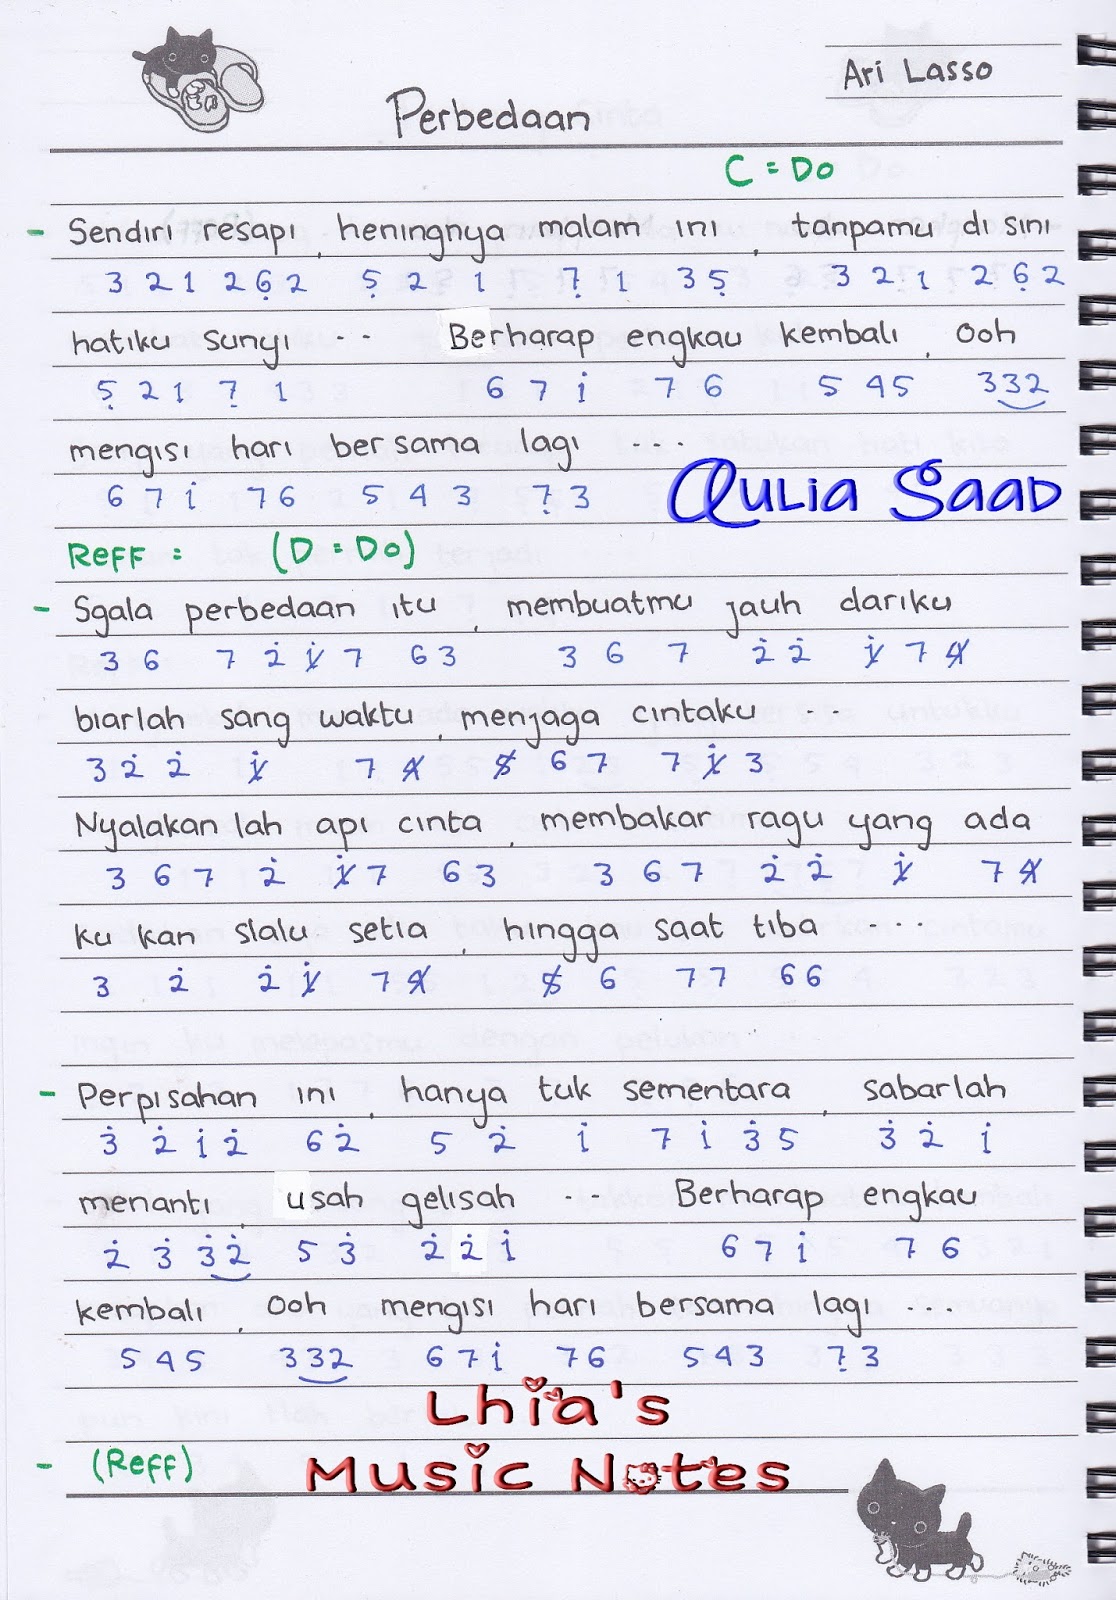 Ari Lasso
Perbedaan
C = Do
- Sendiri resapi, heningnya malam ini, tanpamu disini
3 2 1 2 6̣ 2 5̣ 2 1 7̣ 1 3 5̣ 3 2 1 2 6̣ 2
hatiku sunyi ... Berharap engkau kembali, Ooh
5̣ 2 1 7̣ 1 6 7 i̇ 7 6 5 4 5 3 3 2
mengisi hari bersama lagi ....
6 7 i̇ 7 6 5 4 3 7̣ 3
Aulia Saad
Reff : (D = Do)
- Sgala perbedaan itu, membuatmu jauh dariku
3 6 7 2̇ 1̸̇ 7 6 3 3 6 7 2̇ 2̇ 1̸̇ 7 4̸
biarlah sang waktu, menjaga cintaku ...
3 2̇ 2̇ 1̸̇ 7 4̸ 5̸ 6 7 7 1̸̇ 3
Nyalakan lah api cinta, membakar ragu yang ada
3 6 7 2̇ 1̸̇ 7 6 3 3 6 7 2̇ 2̇ 1̸̇ 7 4̸
ku kan slalu setia, hingga saat tiba ....
3 2̇ 2̇ 1̸̇ 7 4̸ 5̸ 6 7 7 6 6
- Perpisahan ini, hanya tuk sementara, sabarlah
3̇ 2̇ 1̇ 2̇ 6 2̇ 5 2̇ 1̇ 7 1̇ 3̇ 5 3̇ 2̇ 1̇
menanti, usah gelisah ... Berharap engkau
2̇ 3̇ 3̇ 2̇ 5 3̇ 2̇ 2̇ 1̇ 6 7 1̇ 7 6
kembali, Ooh mengisi hari bersama lagi ....
5 4 5 3 3 2 6 7 1̇ 7 6 5 4 3 7̣ 3
Lhia's
- (Reff) Music Notes